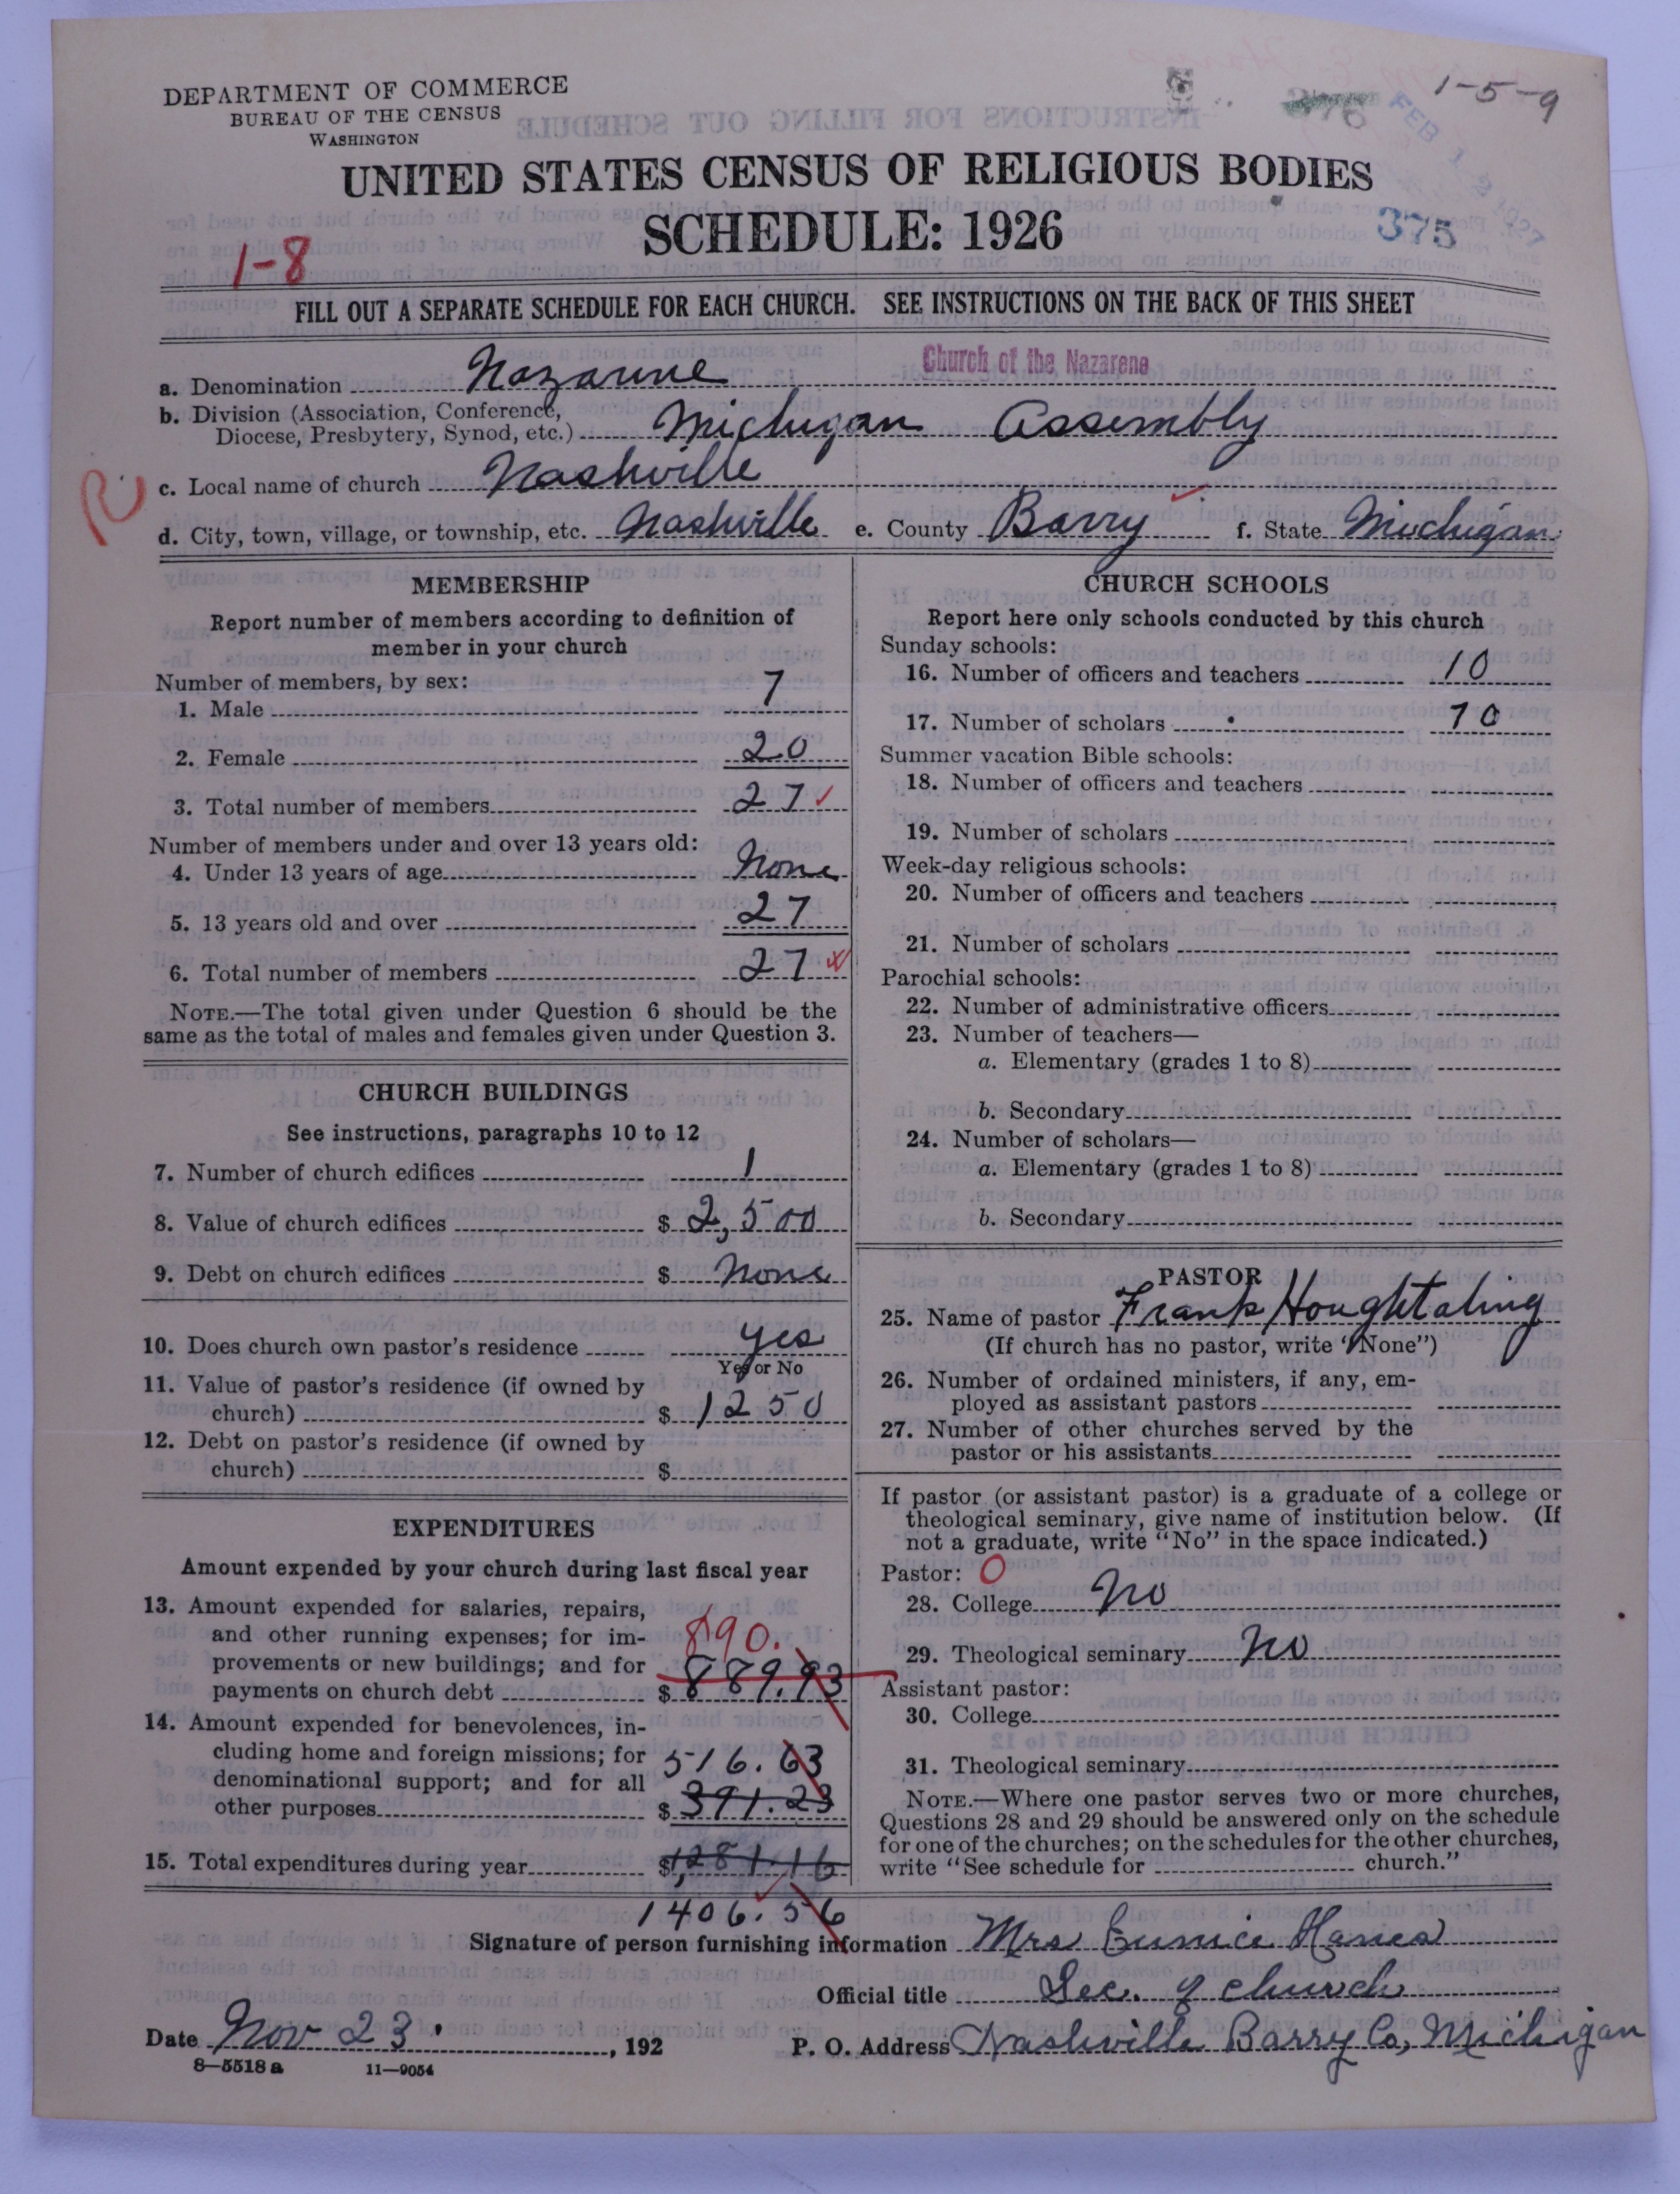 DEPARTMENT OF COMMERCE
BUREAU OF THE CENSUS
WASHINGTON
1-5-9
376
FEB 1 2 1927
UNITED STATES CENSUS OF RELIGIOUS BODIES
SCHEDULE: 1926
375
1-8
FILL OUT A SEPARATE SCHEDULE FOR EACH CHURCH. SEE INSTRUCTIONS ON THE BACK OF THIS SHEET
Church of the Nazarene
a. Denomination Nazarine
b. Division (Association, Conference,
Diocese, Presbytery, Synod, etc.) Michigan Assembly
R
c. Local name of church Nashville
d. City, town, village, or township, etc. Nashville e. County Barry f. State Michigan
MEMBERSHIP
Report number of members according to definition of
member in your church
Number of members, by sex:
1. Male 7
2. Female 20
3. Total number of members 27
Number of members under and over 13 years old:
4. Under 13 years of age None
5. 13 years old and over 27
6. Total number of members 27
NOTE.—The total given under Question 6 should be the
same as the total of males and females given under Question 3.
CHURCH BUILDINGS
See instructions, paragraphs 10 to 12
7. Number of church edifices 1
8. Value of church edifices $ 2,500
9. Debt on church edifices $ None
10. Does church own pastor's residence yes
Yes or No
11. Value of pastor's residence (if owned by
church) $ 1250
12. Debt on pastor's residence (if owned by
church) $
EXPENDITURES
Amount expended by your church during last fiscal year
13. Amount expended for salaries, repairs,
and other running expenses; for im-
890.
provements or new buildings; and for
payments on church debt $ 889.93
14. Amount expended for benevolences, in-
cluding home and foreign missions; for 516.63
denominational support; and for all
other purposes $ 391.23
15. Total expenditures during year $1,281.16
1406.56
CHURCH SCHOOLS
Report here only schools conducted by this church
Sunday schools:
16. Number of officers and teachers 10
17. Number of scholars 70
Summer vacation Bible schools:
18. Number of officers and teachers
19. Number of scholars
Week-day religious schools:
20. Number of officers and teachers
21. Number of scholars
Parochial schools:
22. Number of administrative officers
23. Number of teachers—
a. Elementary (grades 1 to 8)
b. Secondary
24. Number of scholars—
a. Elementary (grades 1 to 8)
b. Secondary
PASTOR
25. Name of pastor Frank Houghtaling
(If church has no pastor, write "None")
26. Number of ordained ministers, if any, em-
ployed as assistant pastors
27. Number of other churches served by the
pastor or his assistants
If pastor (or assistant pastor) is a graduate of a college or
theological seminary, give name of institution below. (If
not a graduate, write "No" in the space indicated.)
Pastor: 0
28. College No
29. Theological seminary No
Assistant pastor:
30. College
31. Theological seminary
NOTE.—Where one pastor serves two or more churches,
Questions 28 and 29 should be answered only on the schedule
for one of the churches; on the schedules for the other churches,
write "See schedule for church."
Signature of person furnishing information Mrs Eunice Hanes
Official title Sec. of church
Date Nov 23. , 192 P. O. Address Nashville Barry Co, Michigan
8—5518 a 11—9054